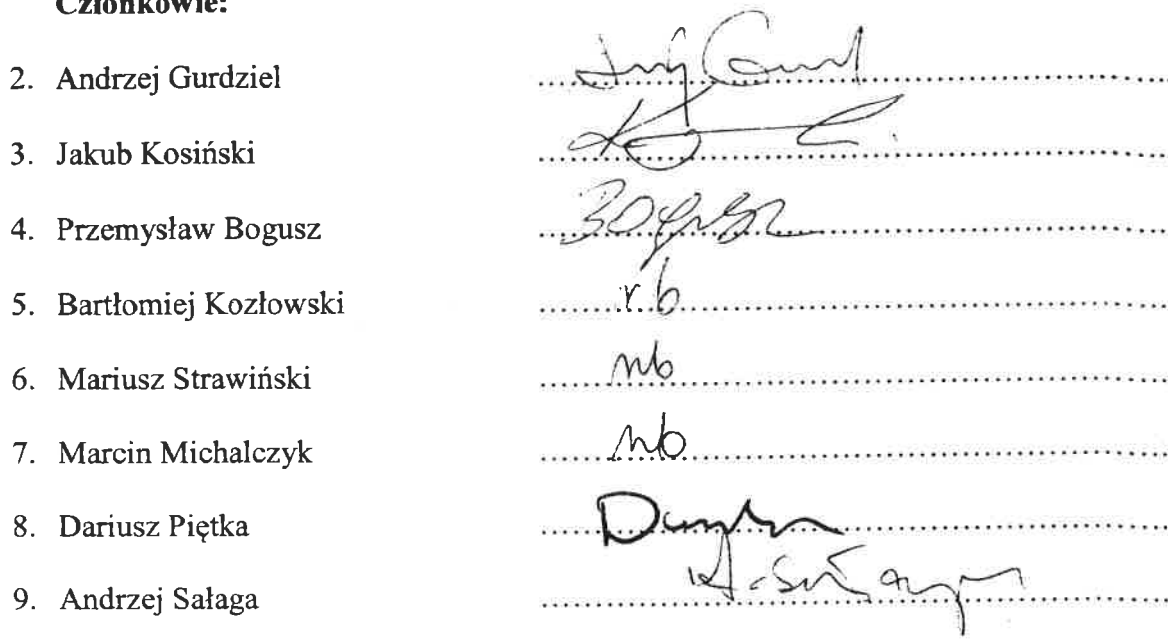 Członkowie:
2. Andrzej Gurdziel
3. Jakub Kosiński
4. Przemysław Bogusz Bogusz
5. Bartłomiej Kozłowski
6. Mariusz Strawiński nb
7. Marcin Michalczyk nb
8. Dariusz Piętka
9. Andrzej Sałaga